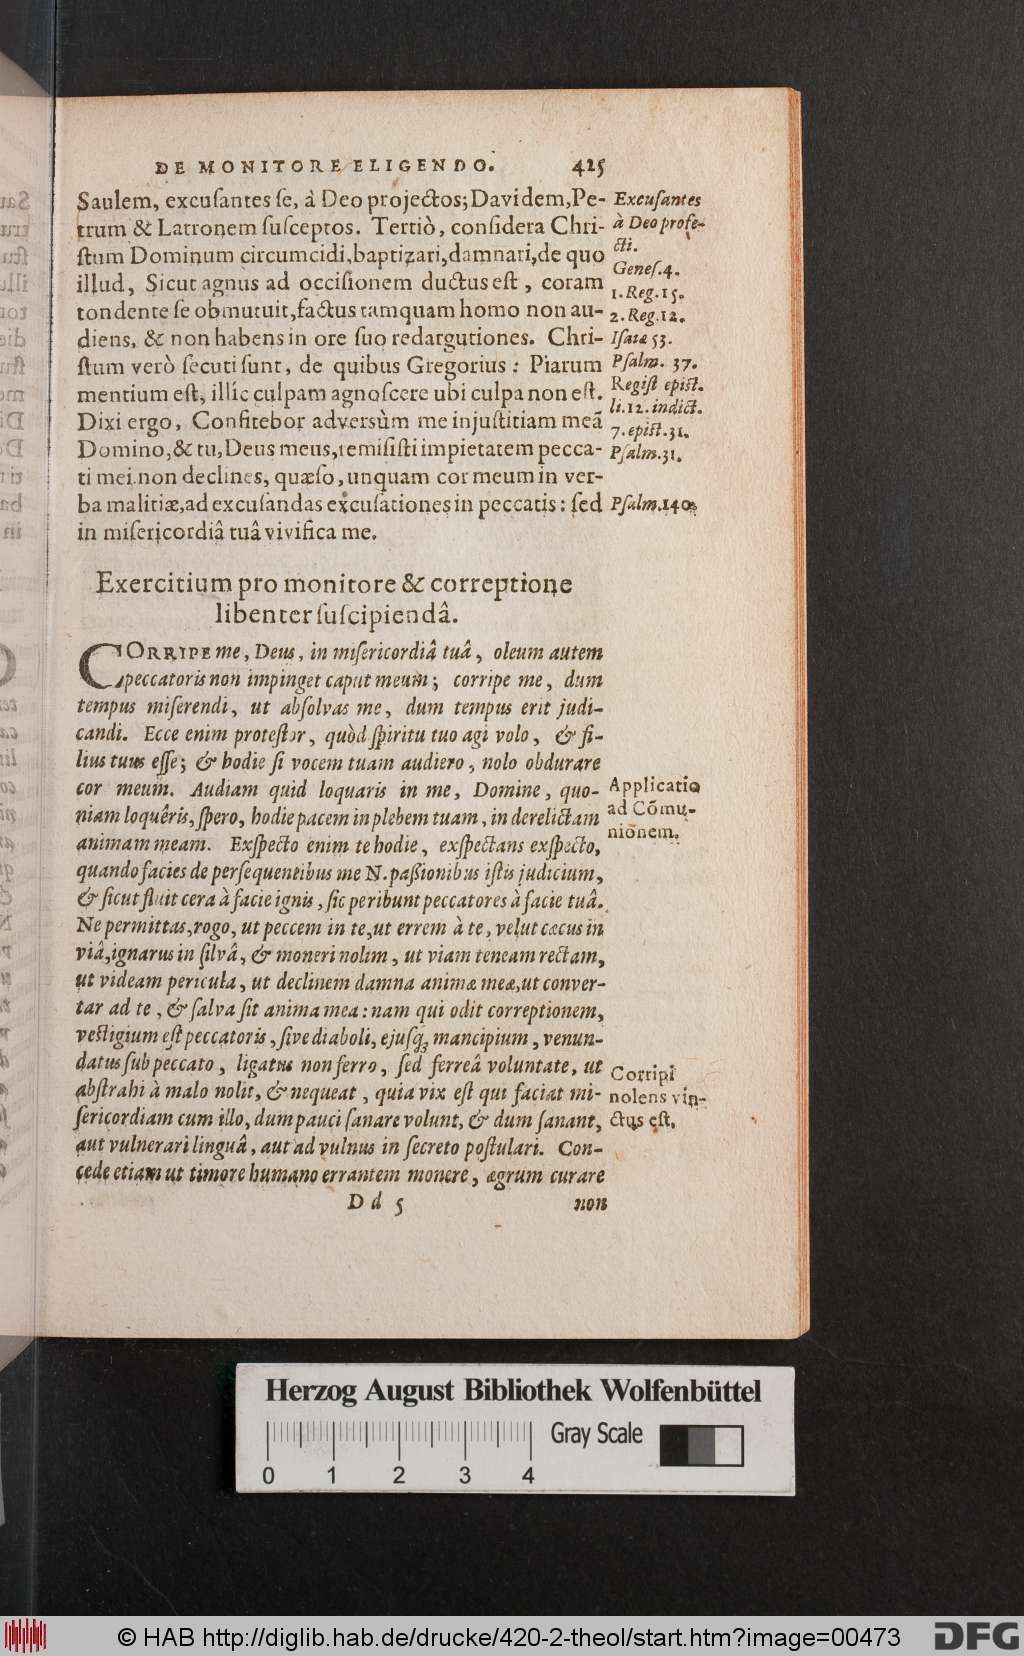 DE MONITORE ELIGENDO. 425
Saulem, excuſantes ſe, à Deo projectos; Davidem, Pe-
trum & Latronem ſuſceptos. Tertiò, conſidera Chri-
ſtum Dominum circumcidi, baptizari, damnari, de quo
illud, Sicut agnus ad occiſionem ductus eſt, coram
tondente ſe obmutuit, factus tamquam homo non au-
diens, & non habens in ore ſuo redargutiones. Chri-
ſtum verò ſecuti ſunt, de quibus Gregorius: Piarum
mentium eſt, illíc culpam agnoſcere ubi culpa non eſt.
Dixi ergo, Confitebor adversùm me injuſtitiam meã
Domino, & tu, Deus meus, remiſiſti impietatem pecca-
ti mei. non declines, quæſo, unquam cor meum in ver-
ba malitiæ, ad excuſandas excuſationes in peccatis: ſed
in miſericordiâ tuâ vivifica me.
Excuſantes
à Deo proje-
cti.
Geneſ. 4.
1. Reg. 15.
2. Reg. 12.
Iſaiæ 53.
Pſalm. 37.
Regiſt epiſt.
li. 12. indict.
7. epiſt. 31.
Pſalm. 31.
Pſalm. 140.
Exercitium pro monitore & correptione
libenter ſuſcipiendâ.
CORRIPE me, Deus, in miſericordiâ tuâ, oleum autem
peccatoris non impinget caput meum; corripe me, dum
tempus miſerendi, ut abſolvas me, dum tempus erit judi-
candi. Ecce enim proteſtor, quòd ſpiritu tuo agi volo, & fi-
lius tuus eſſe; & hodie ſi vocem tuam audiero, nolo obdurare
cor meum. Audiam quid loquaris in me, Domine, quo-
niam loquêris, ſpero, hodie pacem in plebem tuam, in derelictam
animam meam. Exſpecto enim te hodie, exſpectans exſpecto,
quando facies de perſequentibus me N. paſſionibus iſtis judicium,
& ſicut fluit cera à facie ignis, ſic peribunt peccatores à facie tuâ.
Ne permittas, rogo, ut peccem in te, ut errem à te, velut cæcus in
viâ, ignarus in ſilvâ, & moneri nolim, ut viam teneam rectam,
ut videam pericula, ut declinem damna animæ meæ, ut conver-
tar ad te, & ſalva ſit anima mea: nam qui odit correptionem,
veſtigium eſt peccatoris, ſive diaboli, ejuſq́ꝫ mancipium, venun-
datus ſub peccato, ligatus non ferro, ſed ferreâ voluntate, ut
abſtrahi à malo nolit, & nequeat, quia vix eſt qui faciat mi-
ſericordiam cum illo, dum pauci ſanare volunt, & dum ſanant,
aut vulnerari linguâ, aut ad vulnus in ſecreto poſtulari. Con-
cede etiam ut timore humano errantem monere, ægrum curare
Applicatio
ad Cõmu-
nionem.
Corripi
nolens vin-
ctus eſt.
D d 5 non
Herzog August Bibliothek Wolfenbüttel
Gray Scale
0 1 2 3 4
© HAB http://diglib.hab.de/drucke/420-2-theol/start.htm?image=00473
DFG